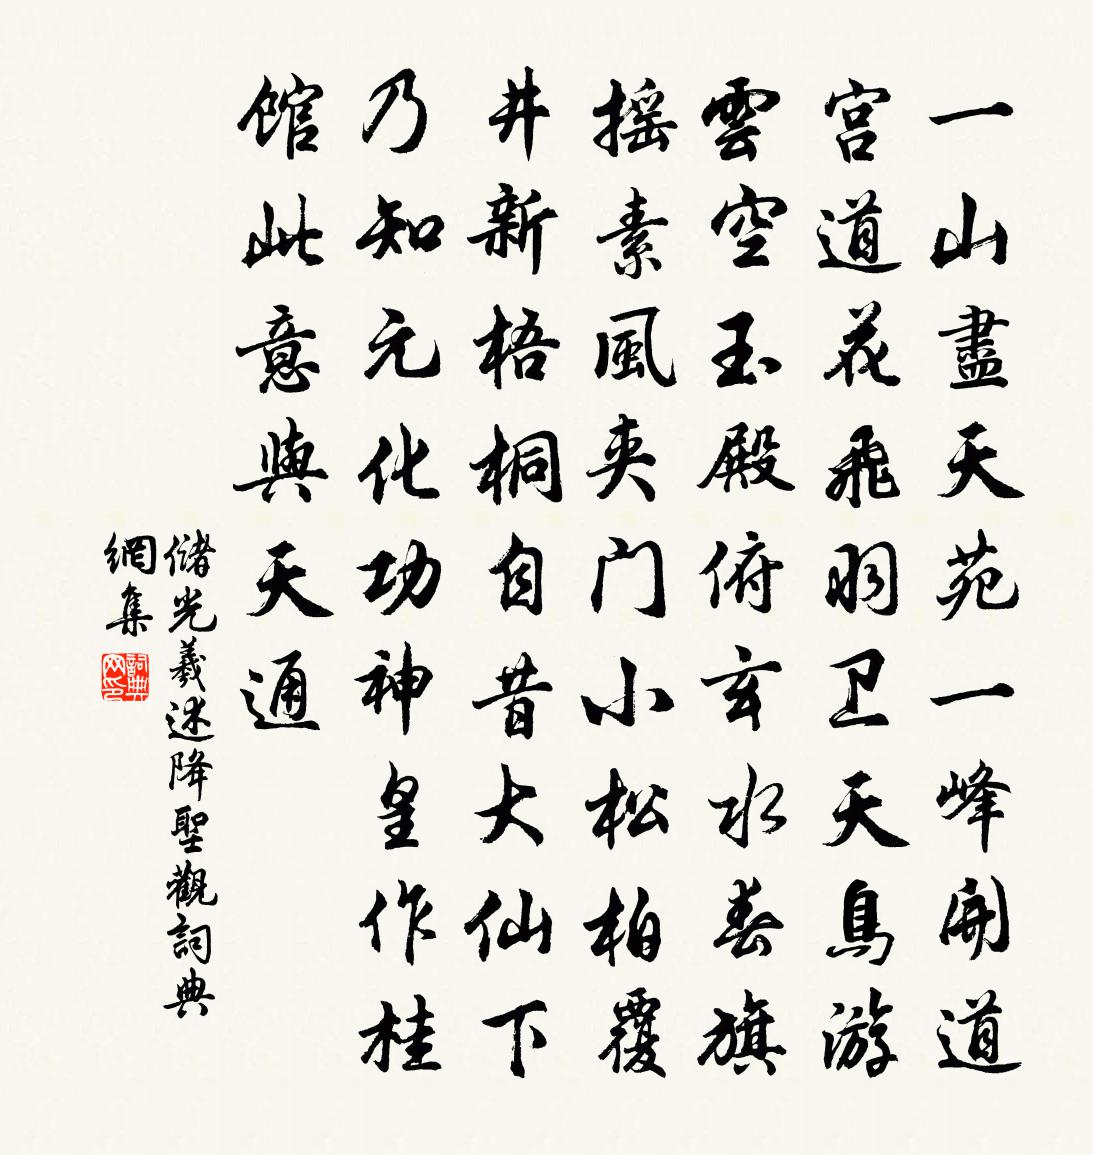 一山盡天苑一峰開道
宮道花飛羽卫天鳥游
雲空玉殿俯玄水春旗
摇素風夾门小松柏覆
井新梧桐自昔大仙下
乃知元化功神皇作桂
館此意與天通
儲光羲述降聖觀詞典
網集
詞典
网印